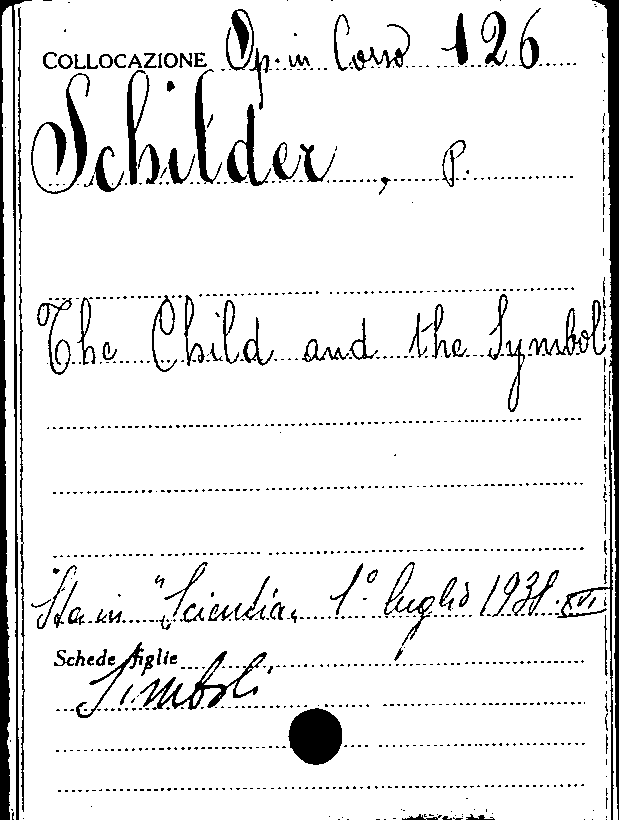 COLLOCAZIONE Op. in Corso 126
Schilder, P.
The Child and the Symbol
Sta in "Scientia" 1° luglio 1938. XVI
Schede figlie
Simboli